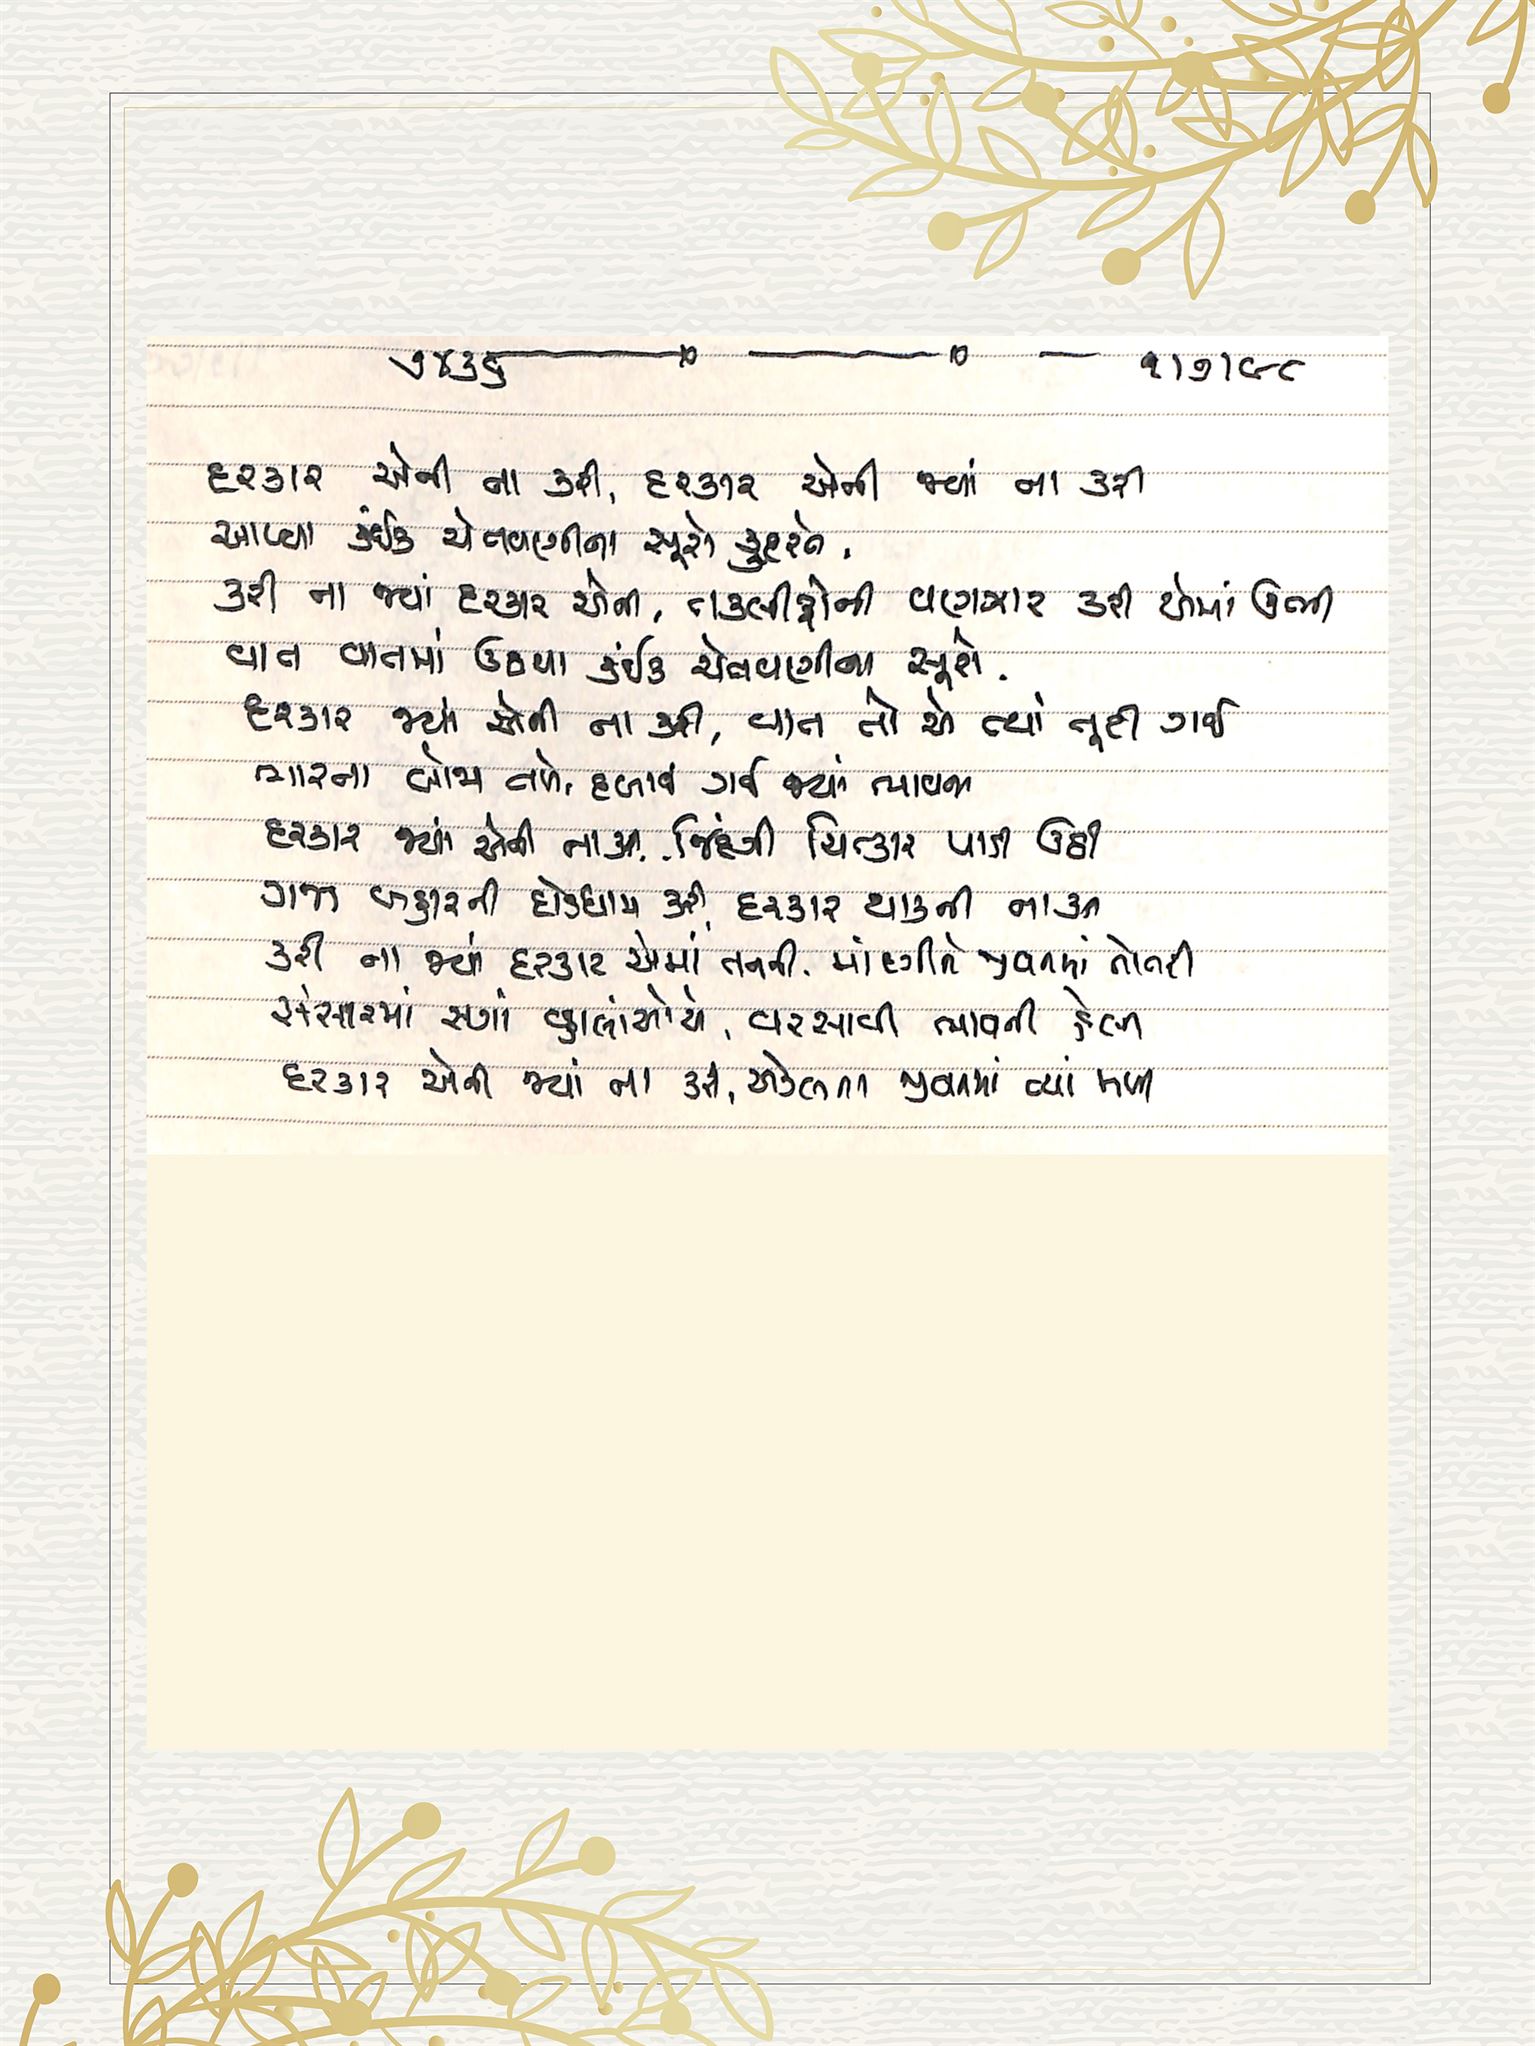 ૭૪૩૬ ૧।૭।૯૮
દરકાર એની ના કરી, દરકાર એની જ્યાં ના કરી
આપ્યા કંઈક ચેતવણીના સૂરો કુદરતે.
કરી ના જ્યાં દરકાર એની, તકલીફોની વણઝાર કરી એમાં ઉભી
વાત વાતમાં ઉઠયા કંઈક ચેતવણીના સૂરો.
દરકાર જ્યાં એની ના કરી, વાત તો એ ત્યાં તૂટી ગઈ
ભારના બોજ તળે, દબાઈ ગઈ જ્યાં ભાવના
દરકાર જ્યાં એની ના કરી. જિંદગી ચિત્કાર પાડી ઉઠી
ગજા બહારની દોડધામ કરી, દરકાર થાકની ના કરી
કરી ના જ્યાં દરકાર એમાં તનની. માંદગીને જીવનમાં નોતરી
સંસારમાં સગાં વ્હાલાંઓએ, વરસાવી ભાવની હેલી
દરકાર એની જ્યાં ના કરી, એકલતા જીવનમાં ત્યાં મળી